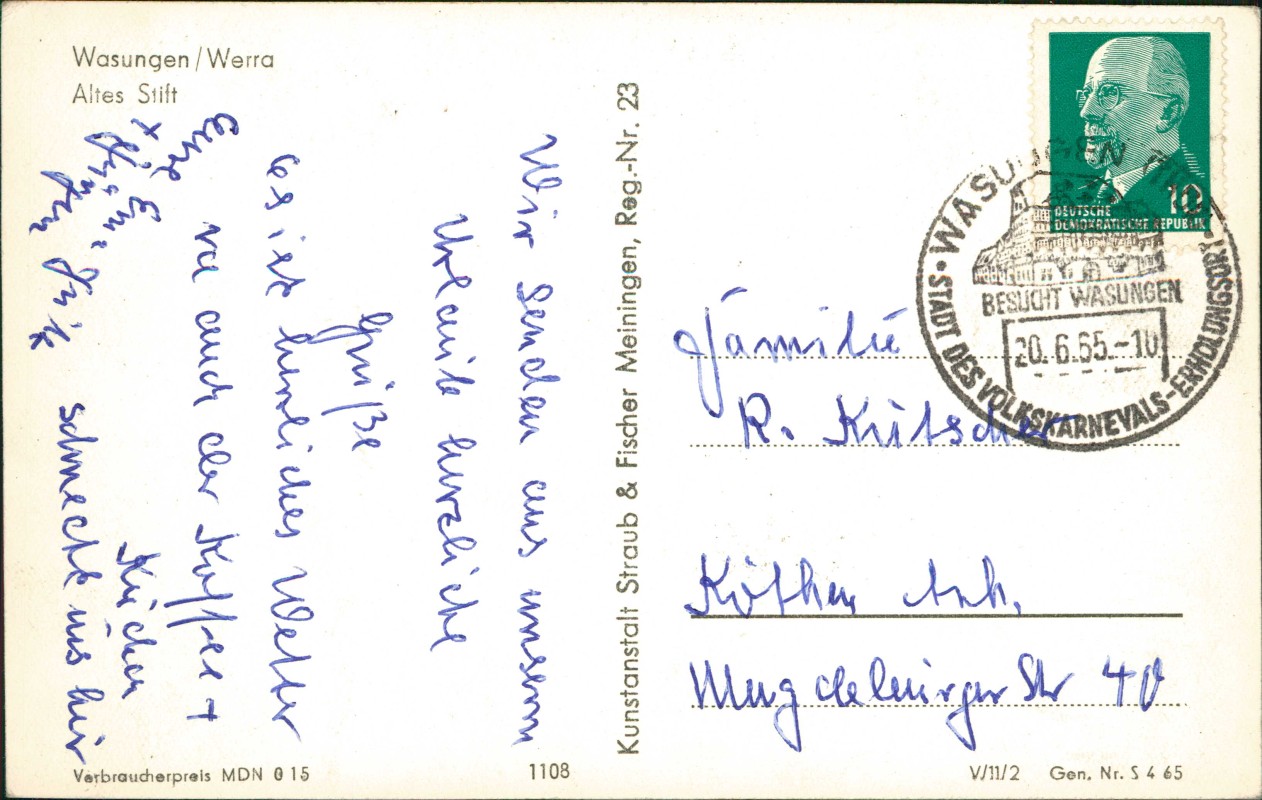 Wasungen/Werra
Altes Stift
Wir senden aus unserm
Urlaub herzliche
Grüße
es ist herrliches Wetter
und auch der Kaffee +
Kuchen
schmeckt uns hier
Eure
Kunstanstalt Straub & Fischer Meiningen, Reg.-Nr. 23
DEUTSCHE
DEMOKRATISCHE REPUBLIK
10
• WASUNGEN
BESUCHT WASUNGEN
20.6.65.-10
• STADT DES VOLKSKARNEVALS-ERHOLUNGSORT •
Familie
R. Kutscher
Köthen Anh.
Magdeburger Str 40
Verbraucherpreis MDN 0 15
1108
V/11/2 Gen. Nr. S 4 65